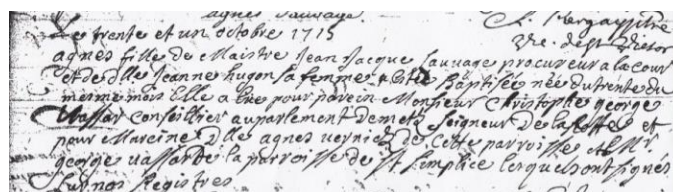 agnes Sauvage
Le trente et un octobre 1715
agnes fille de Maistre Jean Jacque Sauvage procureur a la cour
et de dlle Jeanne hugon sa femme a esté Baptisée née du trente du
mesme mois Elle a eue pour parein Monsieur Christophe george
Vassar conseillier au parlement de metz Seigneur De la et
pour Mareine Dlle agnes verniés de Cette parroisse et Mr
george vassar de la parroisse de St Simplice lesquels ont signés
Sur nos Registres
vic. de St victor